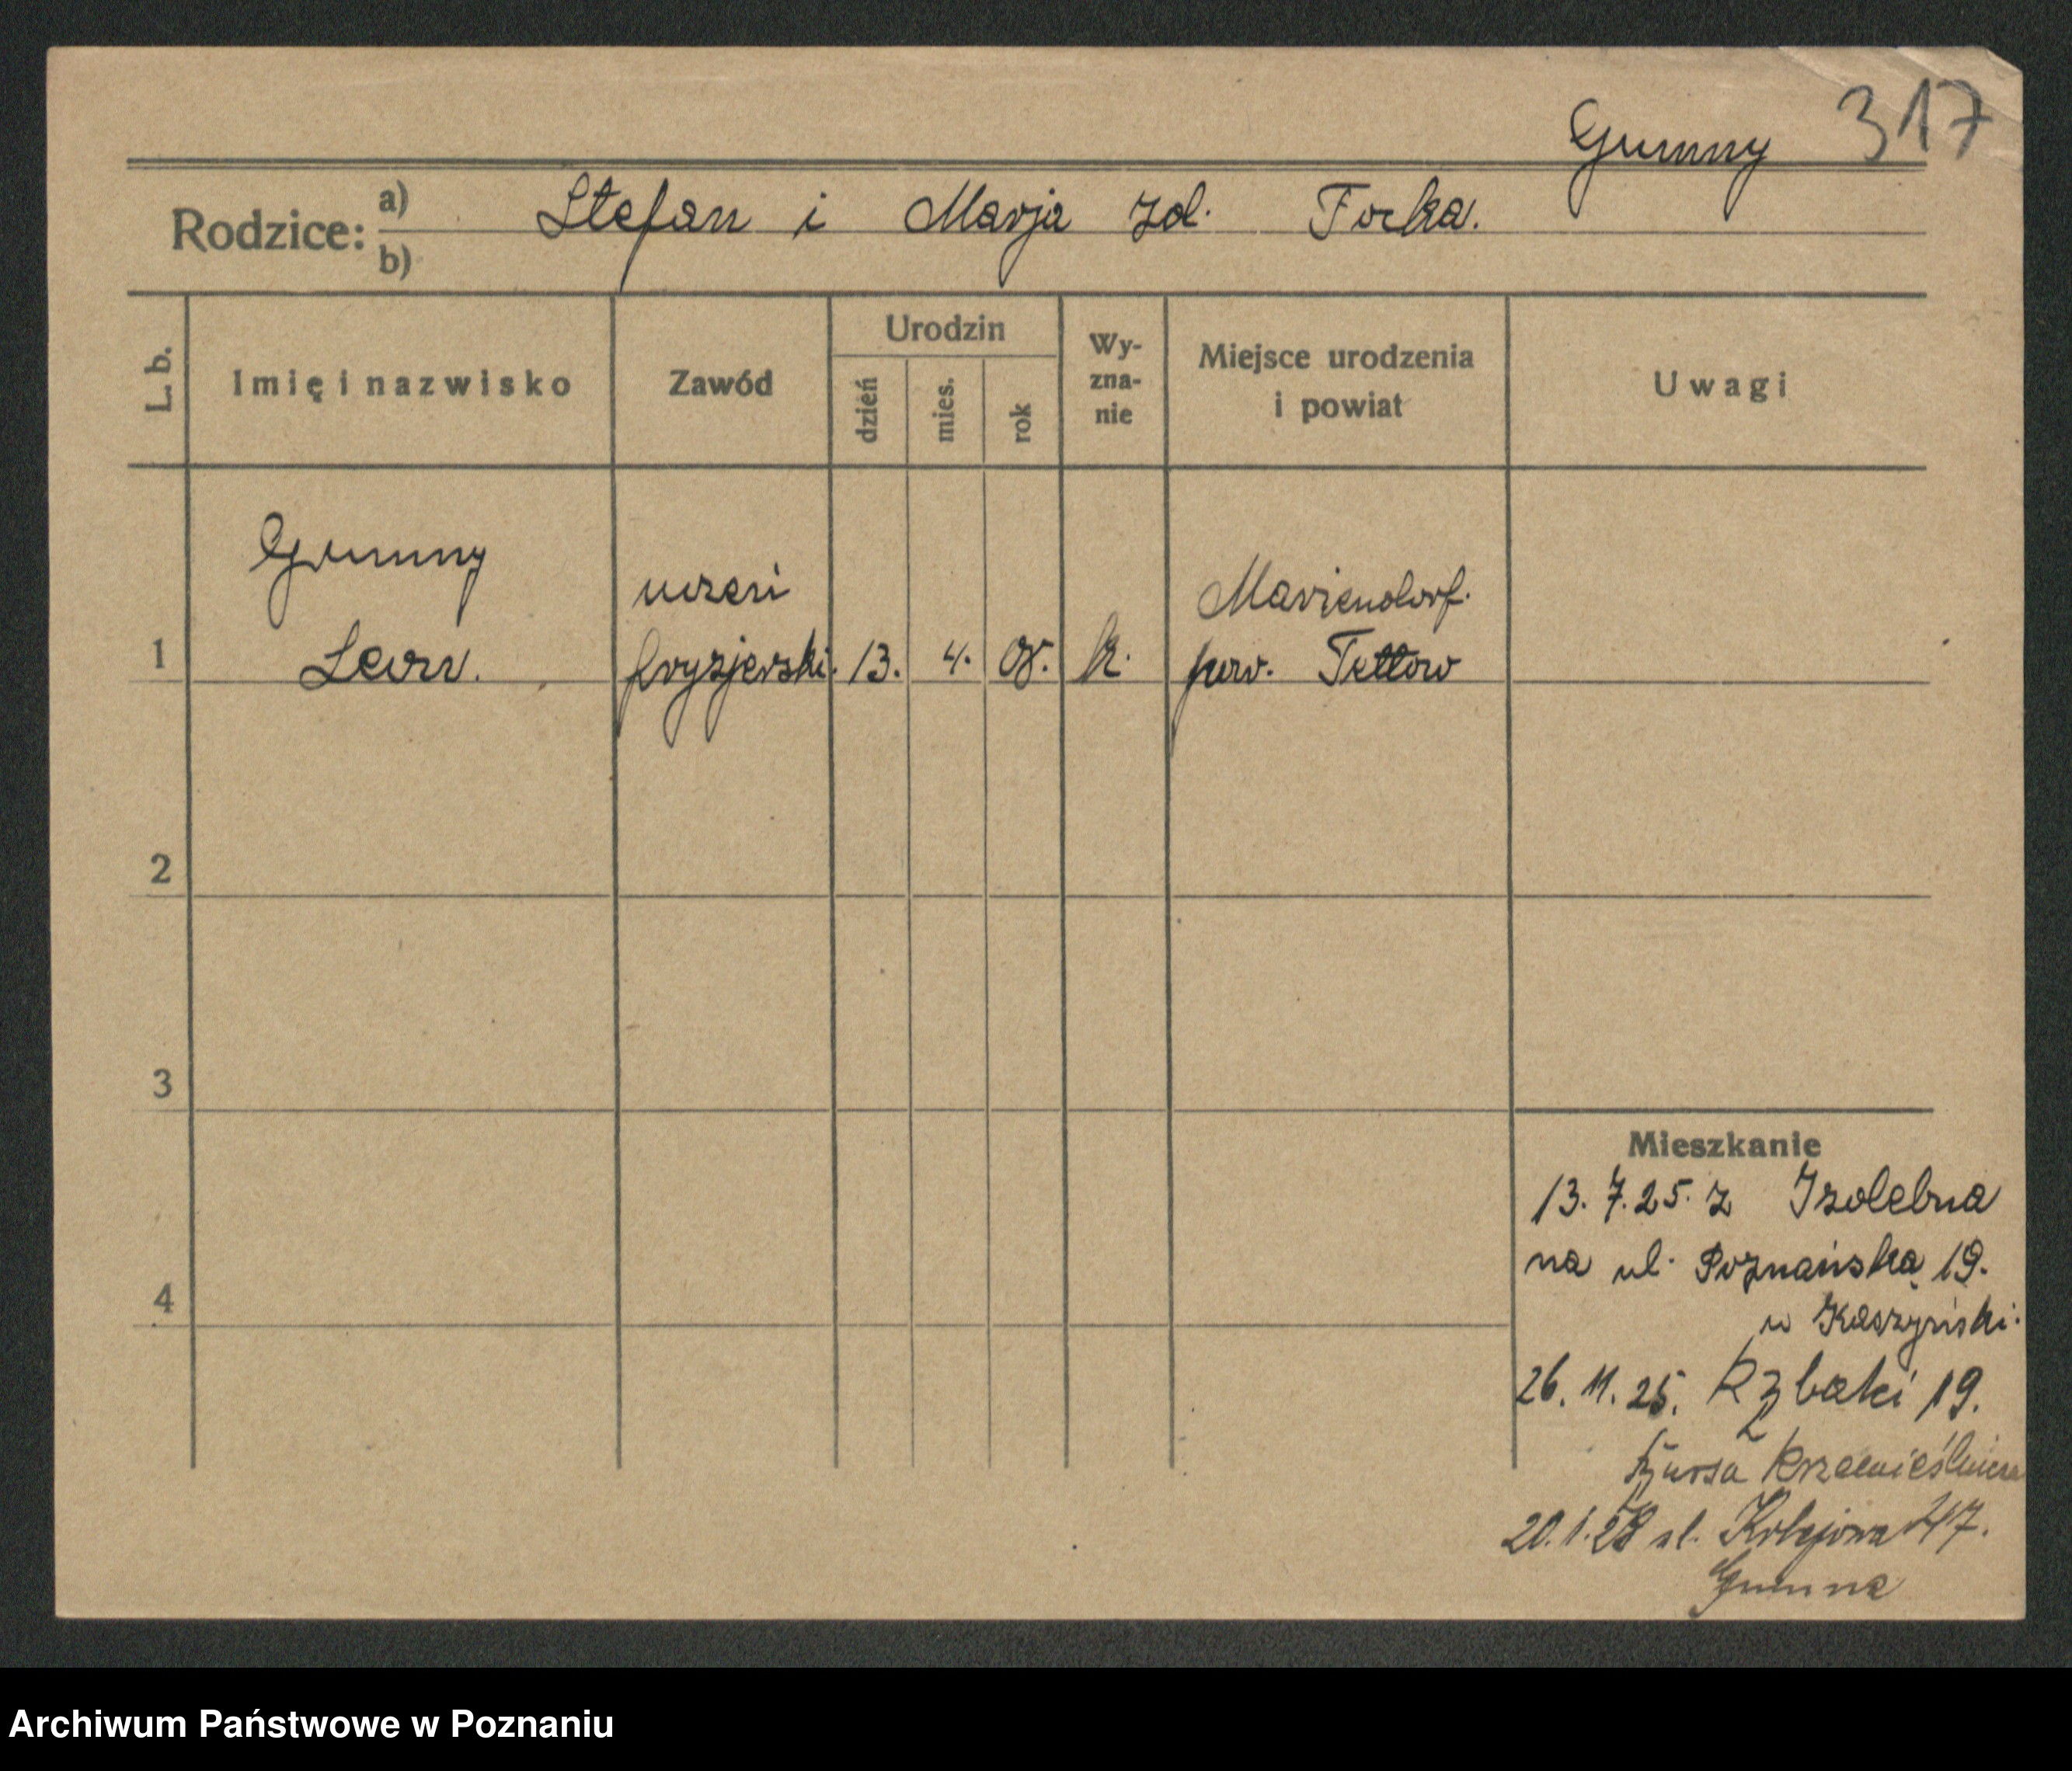 Gumny 317
Rodzice: a) b) Stefan i Marja zd. Focka.
L. b.
Imię i nazwisko
Zawód
Urodzin
dzień
mies.
rok
Wy-
zna-
nie
Miejsce urodzenia
i powiat
Uwagi
Gumny
uczeń
Mariendorf.
1 Leon. fryzjerski. 13. 4. 08. k. pow. Teltow
2
3
4
Mieszkanie
13. 7. 25. z
na ul. Poznańska 19.
u Kaszyński.
26. 11. 25. Rybaki 19.
Bursa Rzemieślnicza
20. 1. 28 ul. Kolejowa 47.
Gumna
Archiwum Państwowe w Poznaniu